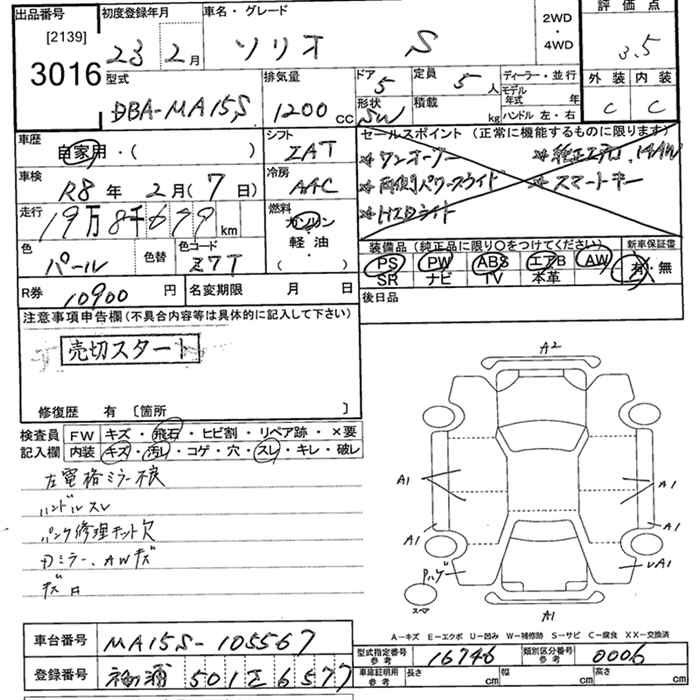 出品番号 初度登録年月 車名・グレード 2WD・4WD 評価点
[2139]
3016
23 2月 ソリオ S 3.5
型式 排気量 ドア 5 定員 5人 ディーラー・並行 外装 内装
DBA-MA15S 1200CC 形状 SW 積載 kg モデル年式 年 C C
ハンドル 左・右
車歴 自家用・( ) シフト IAT
セールスポイント (正常に機能するものに限ります)
ワンオーナー 純正エアロ,14AW
両側パワースライド スマートキー
HIDライト
車検 R8年 2月(7日) 冷房 AAC
走行 19万8千699km 燃料 ガソリン・軽油・( )
装備品 (純正品に限り○をつけてください) 新車保証書
色 パール 色替 色コード Z7T
PS PW ABS エアB AW 有・無
SR ナビ TV 本革
R券 10900円 名変期限 月 日
後日品
注意事項申告欄 (不具合内容等は具体的に記入して下さい)
売切スタート
修復歴 有 〔箇所 〕
検査員記入欄 FW キズ・飛石・ヒビ割・リペア跡・×要
内装 キズ・汚レ・コゲ・穴・スレ・キレ・破レ
左電格ミラー不良
ハンドルスレ
パンク修理キット欠
ミラー、AWキズ
A2
A1 A1
A1 A1
ハゲ A1
スマ A1
A-キズ E-エクボ U-凹み W-補修跡 S-サビ C-腐食 XX-交換済
車台番号 MA15S-105567
型式指定番号 参考 16746 類別区分番号 参考 0006
登録番号 501 6577
車庫証明用 参考 長さ 幅 高さ